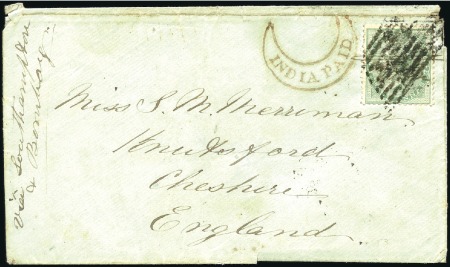 via Southampton
& Bombay
INDIA PAID
Miss S. M. Merriman
Knutsford
Cheshire
England